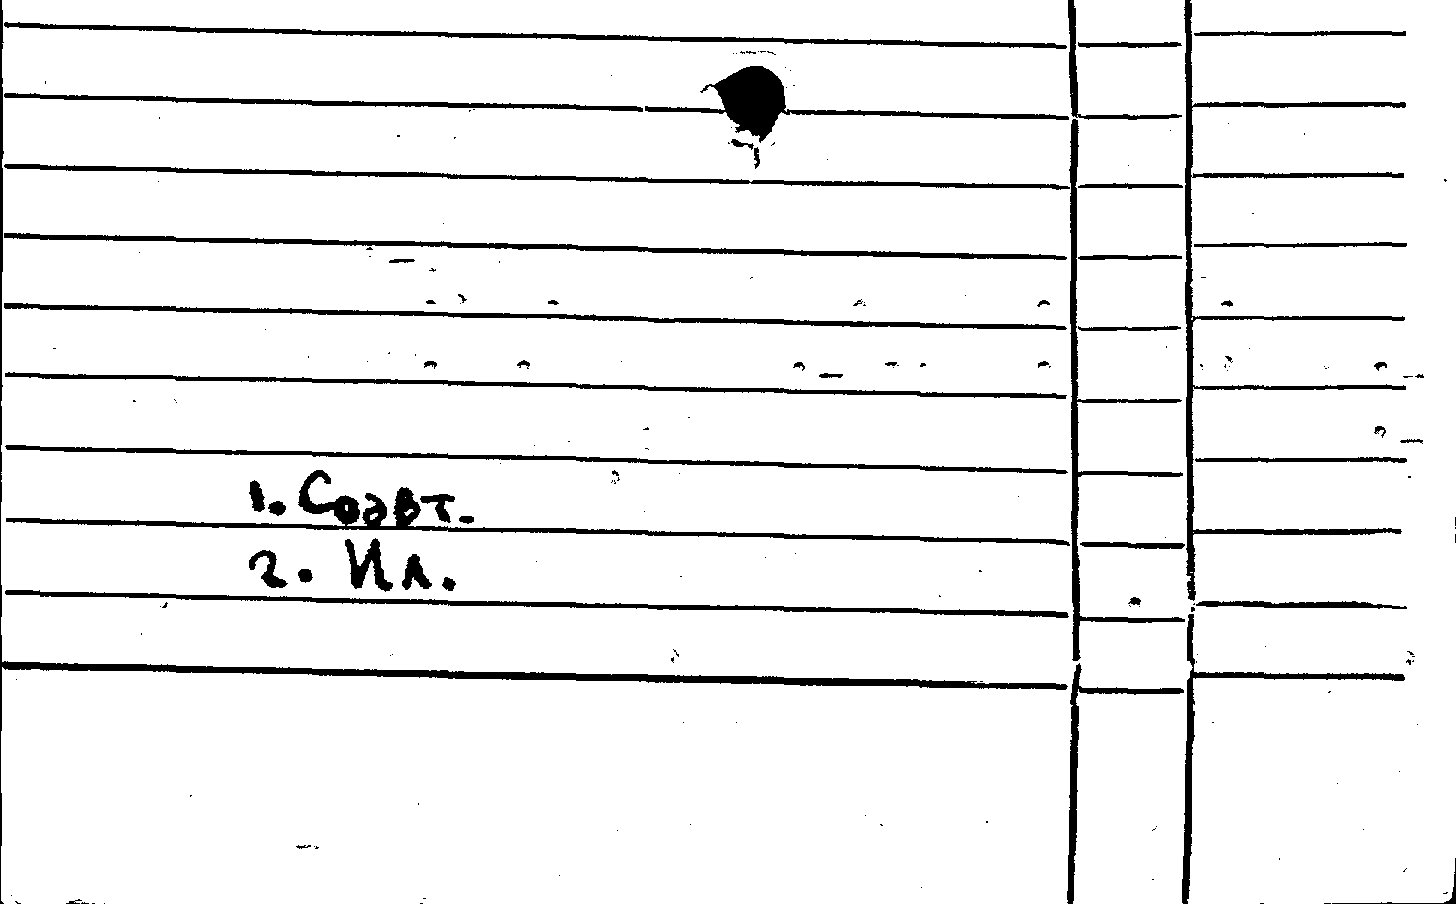 1. Соавт.
2. Ил.